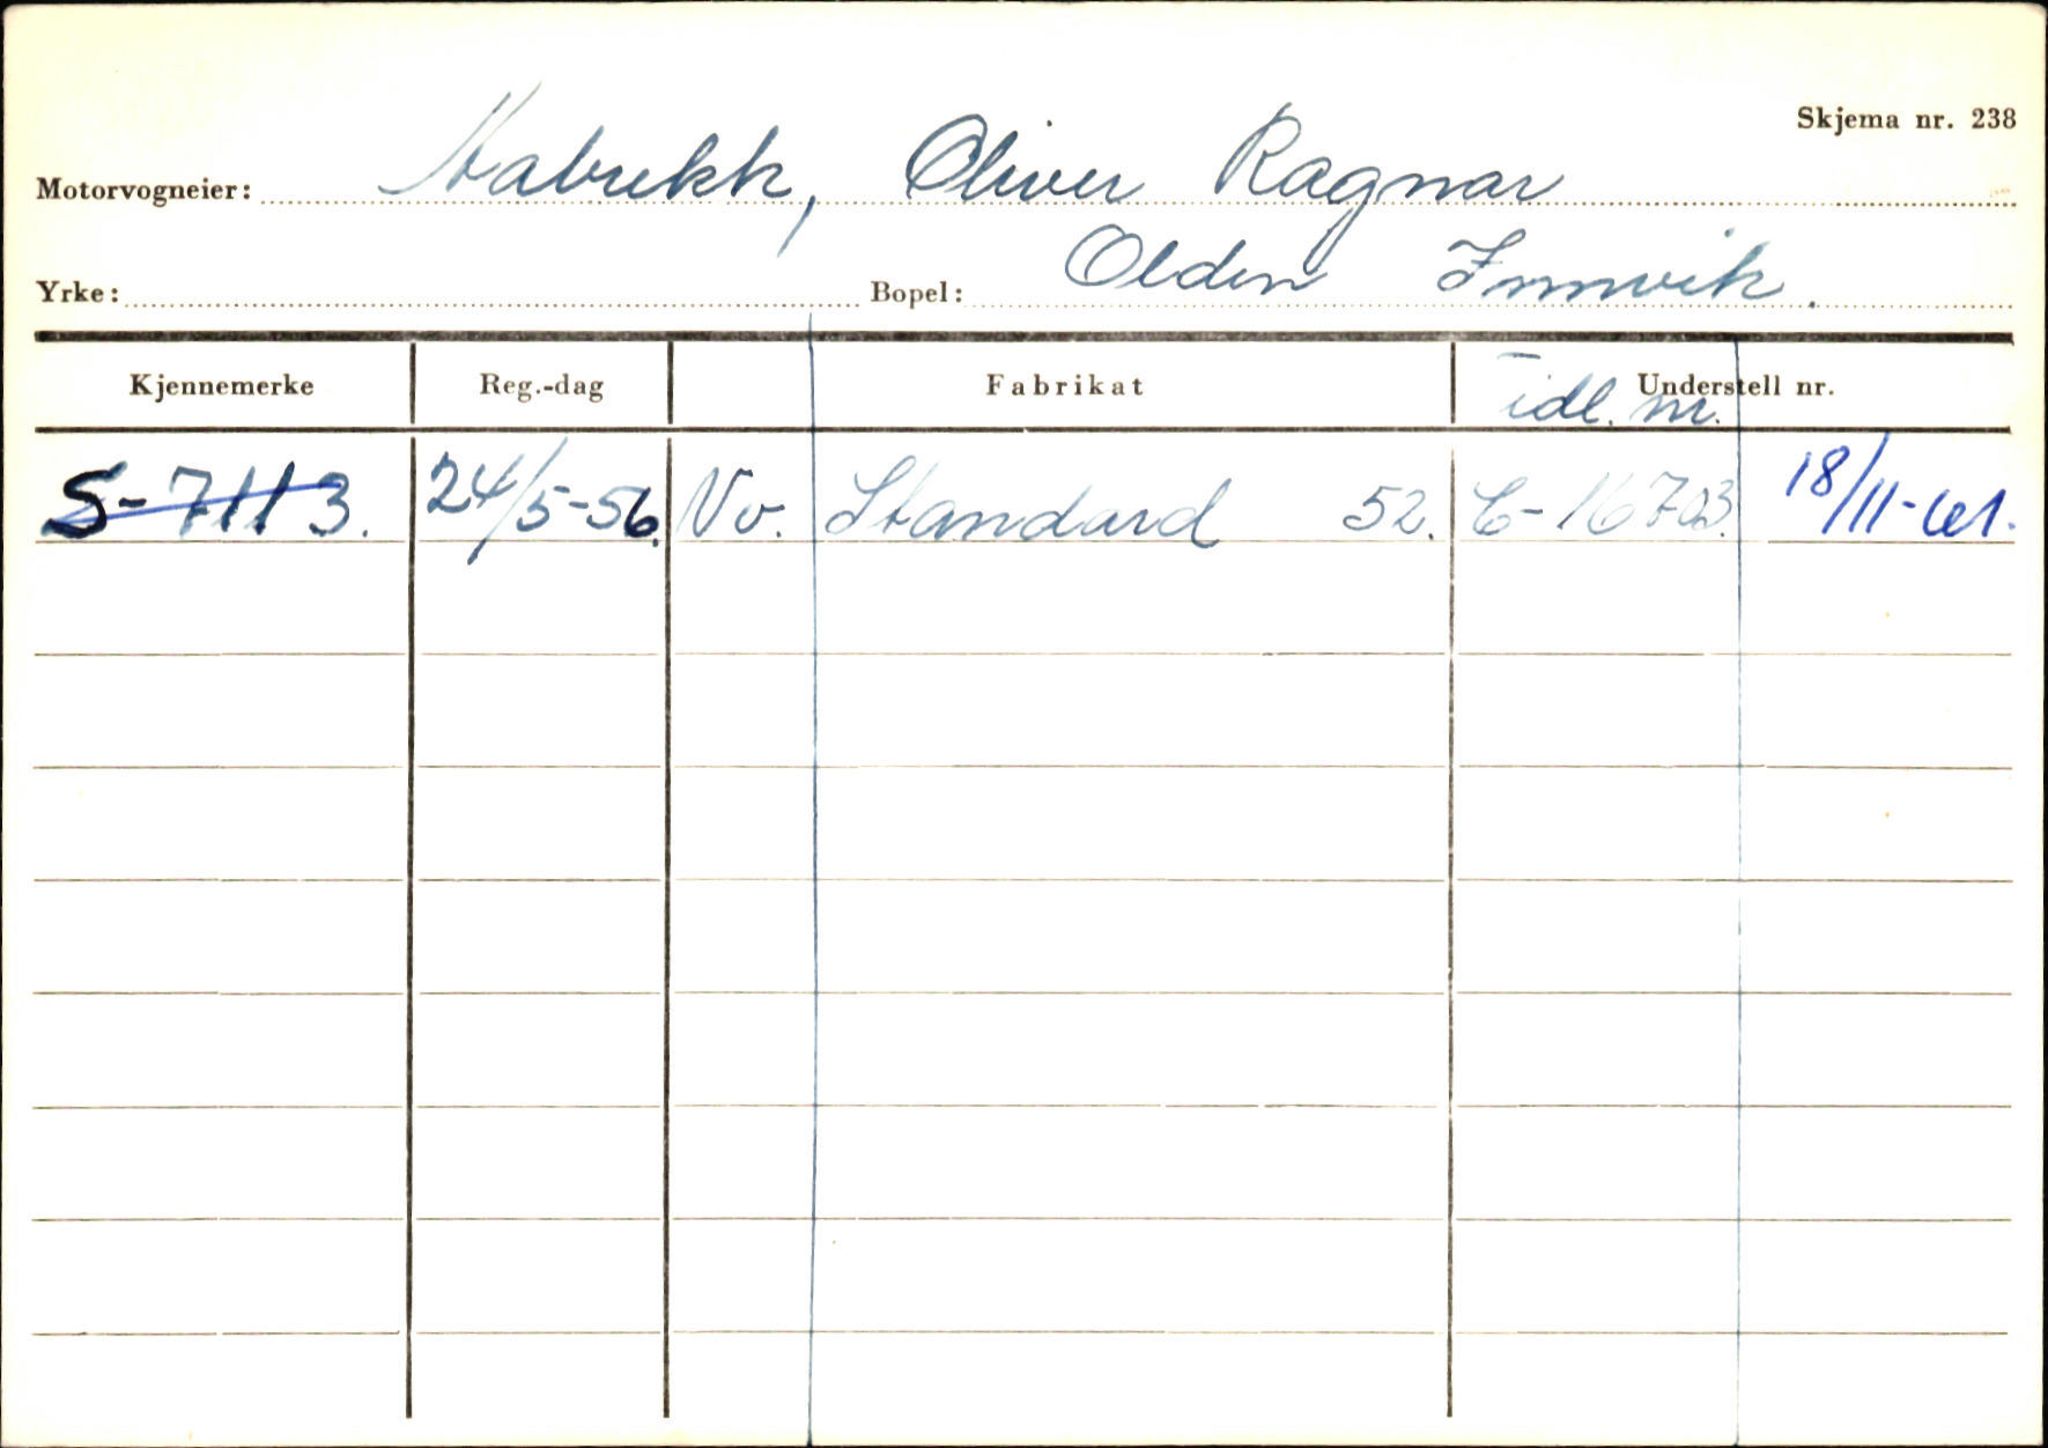 Skjema nr. 238
Motorvogneier: Aabrekk, Oliver Ragnar
Yrke: Bopel: Olden Innvik.
Kjennemerke Reg.-dag Fabrikat Understell nr.
Tidl. nr.
S-7113. 24/5-56. Vv. Standard 52. C-16703. 18/11-61.